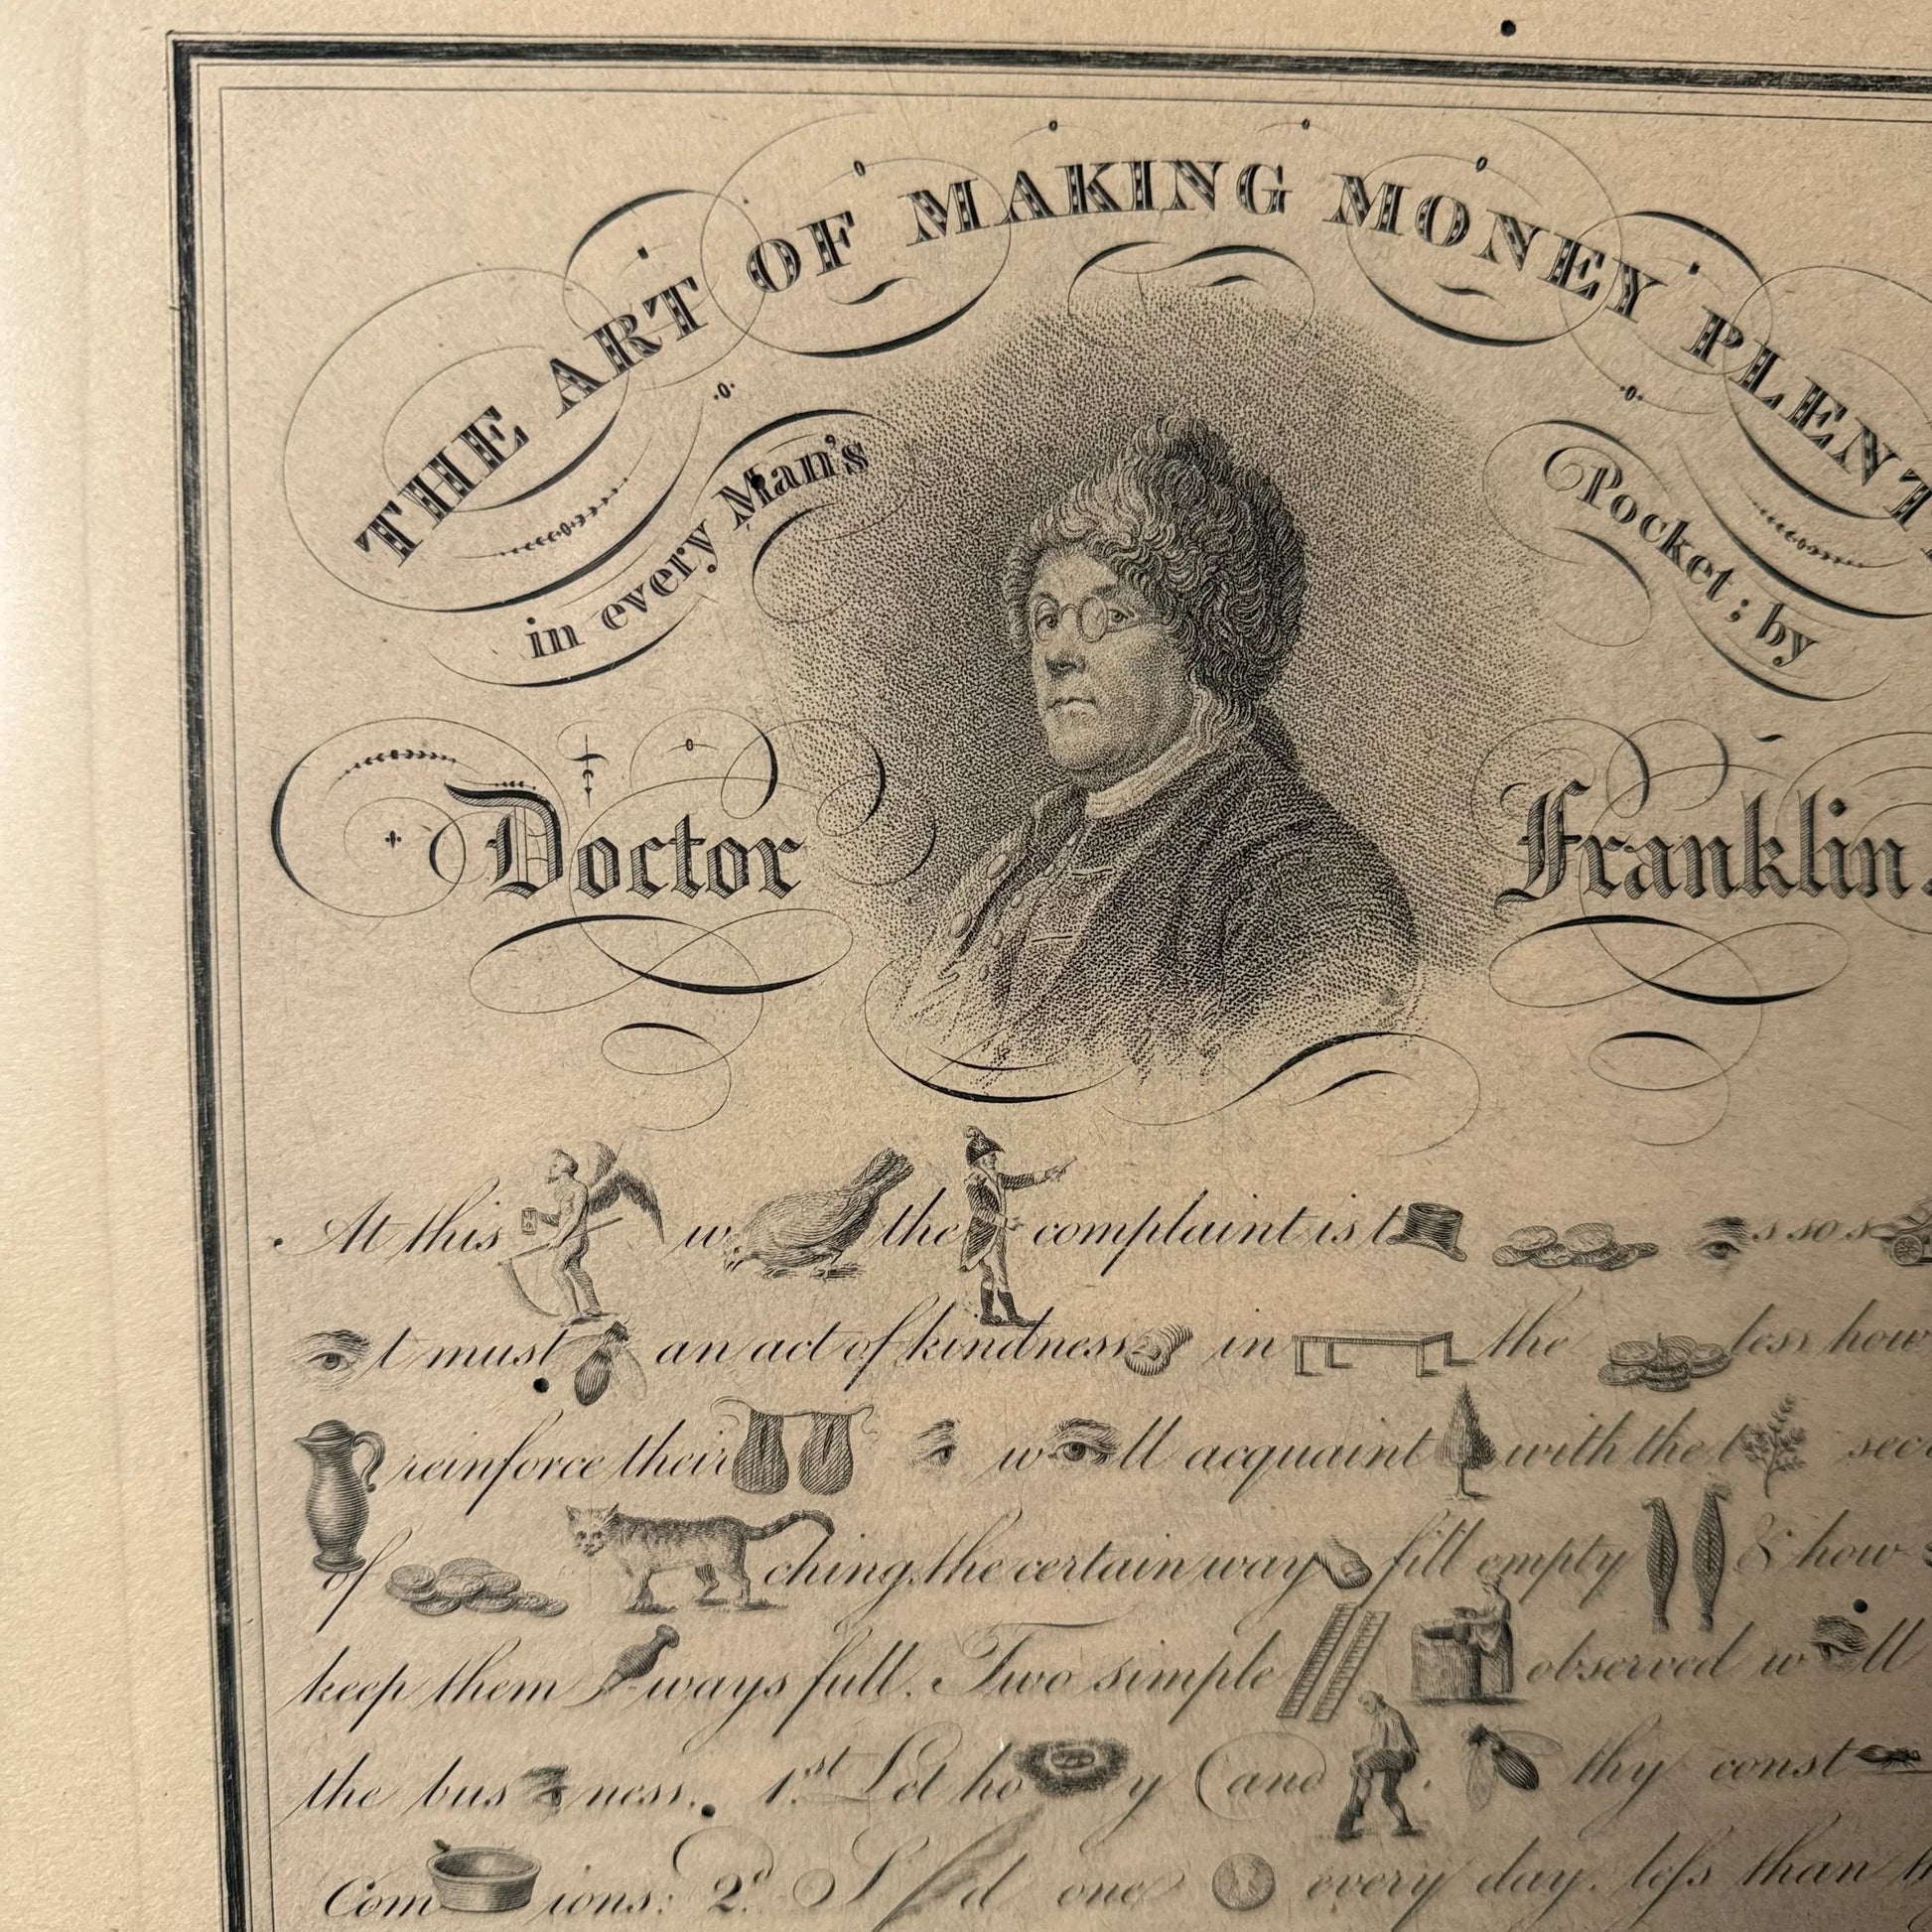 THE ART OF MAKING MONEY PLENT
in every Man's
Pocket; by
Doctor
Franklin.
At this w the complaint is t s so s
t must an act of kindness in the less how
reinforce their w ll acquaint with the t sec
of ching, the certain way fill empty & how
keep them ways full. Two simple observed w ll
the bus ness. 1.st Let ho y (and . thy const
Com ions: 2.d S d one every day. less than